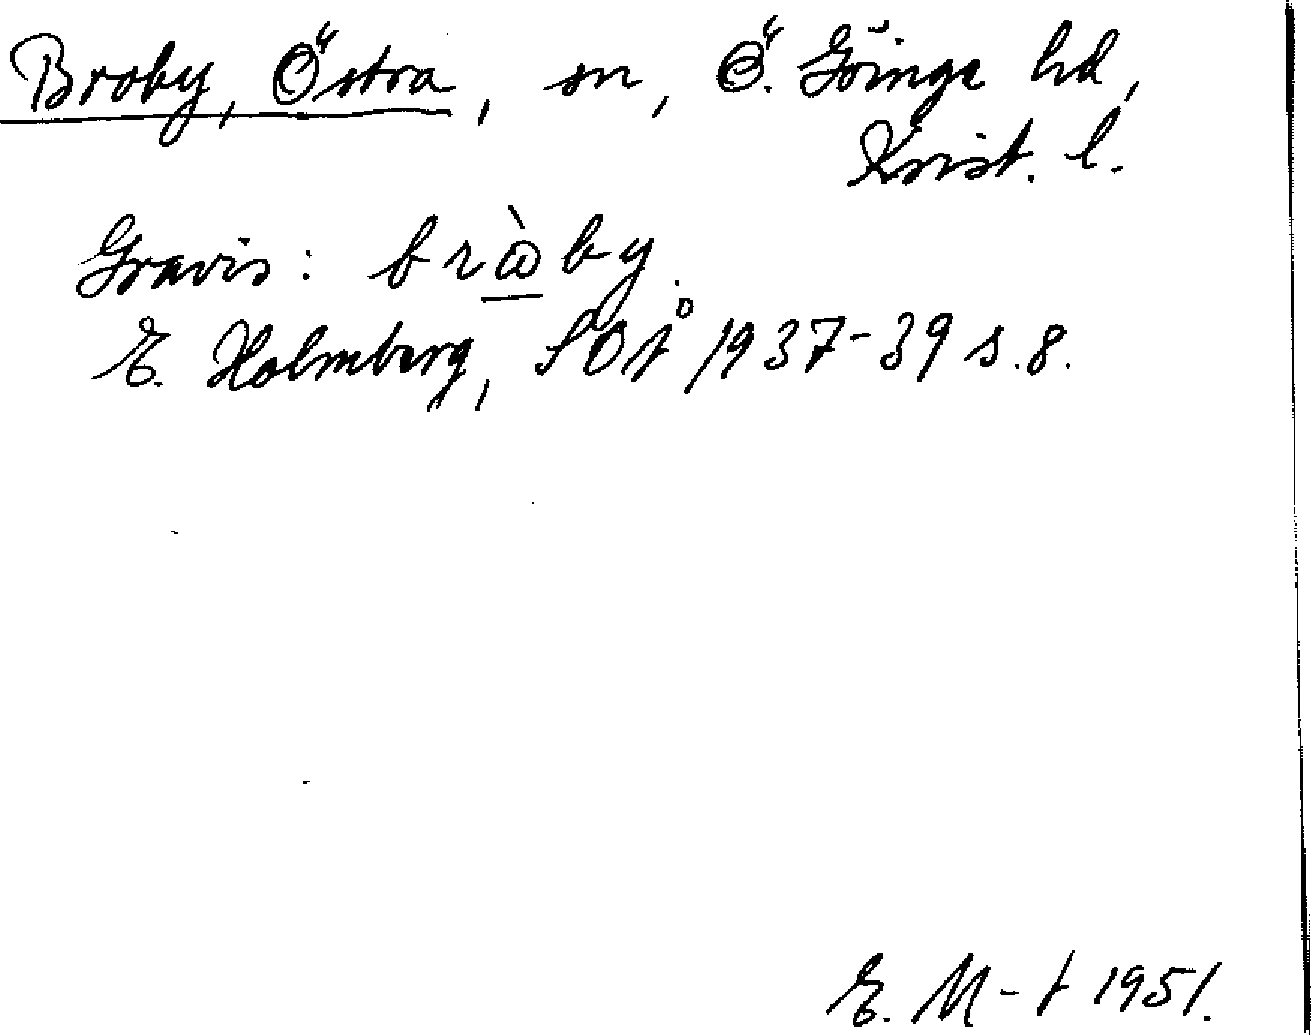 Broby, Östra, sn, Ö. Göinge hd,
Krist. l.
Gravis: brὼby.
E. Holmberg, SOÅ 1937-39 s.8.
E. M-t 1951.